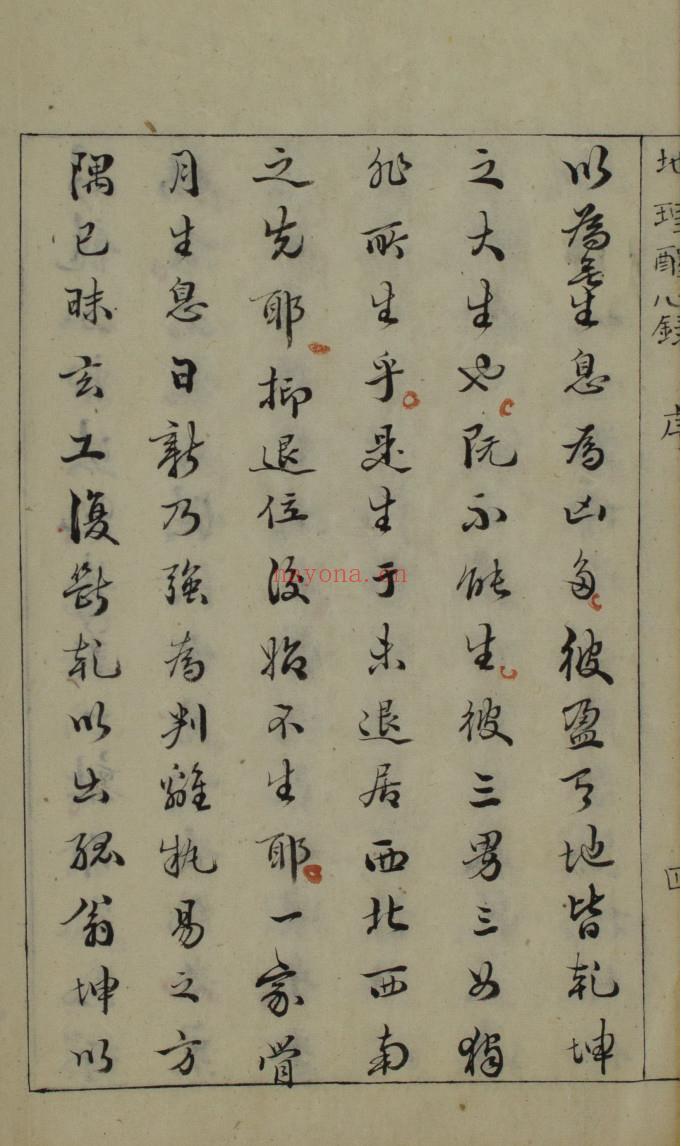 地理醒心錄 序 四
以為無生息為凶多彼盈天地皆乾坤
之大生也既不能生彼三男三女獨
非所生乎是生于未退居西北西南
之先耶抑退位後始不生耶一家骨
月生息日新乃強為判離執易之方
隅已昧玄工復斷乾以出孤翁坤以
nayona.cn